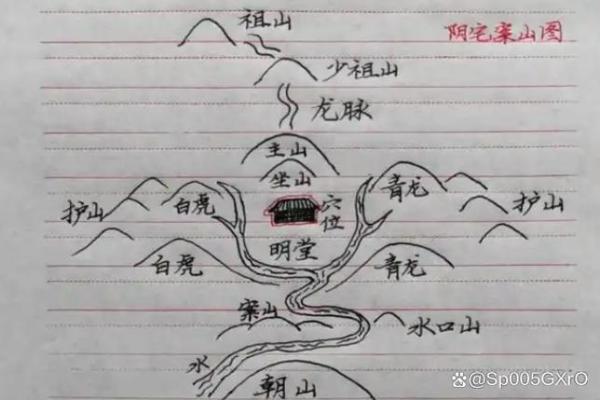 祖山
阴宅案山图
少祖山
龙脉
主山
坐山
护山
白虎
穴位
青龙
护山
明堂
白虎
青龙
案山
水口山
水
朝山
@Sp005GXrO